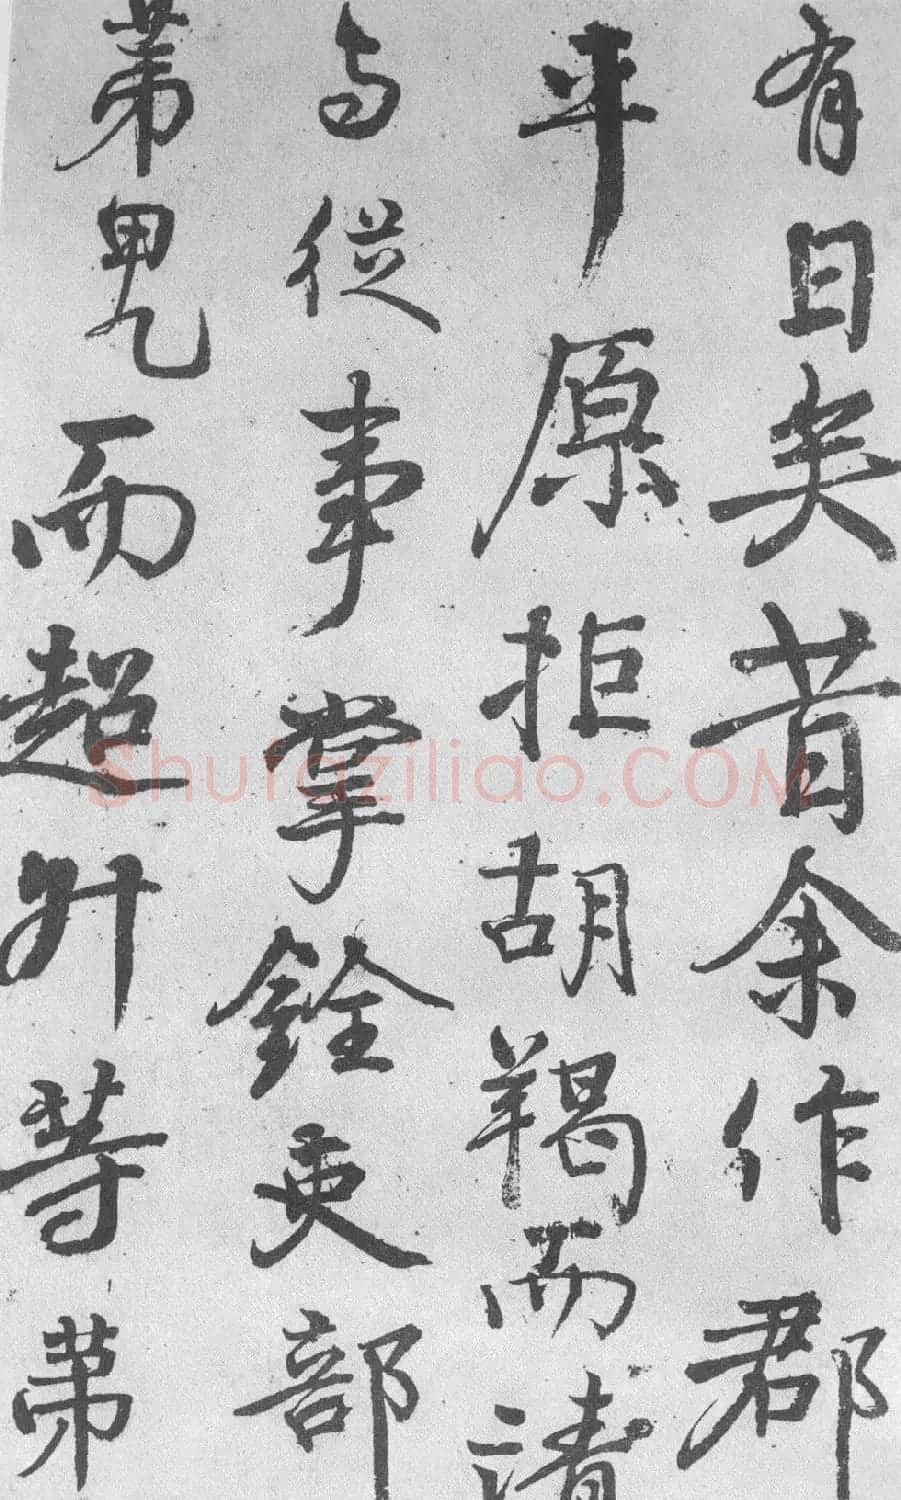 有日矣昔余作郡
平原拒胡羯而清
与從事掌銓吏部
苐甲乙而超升等苐
Shufaziliao.COM